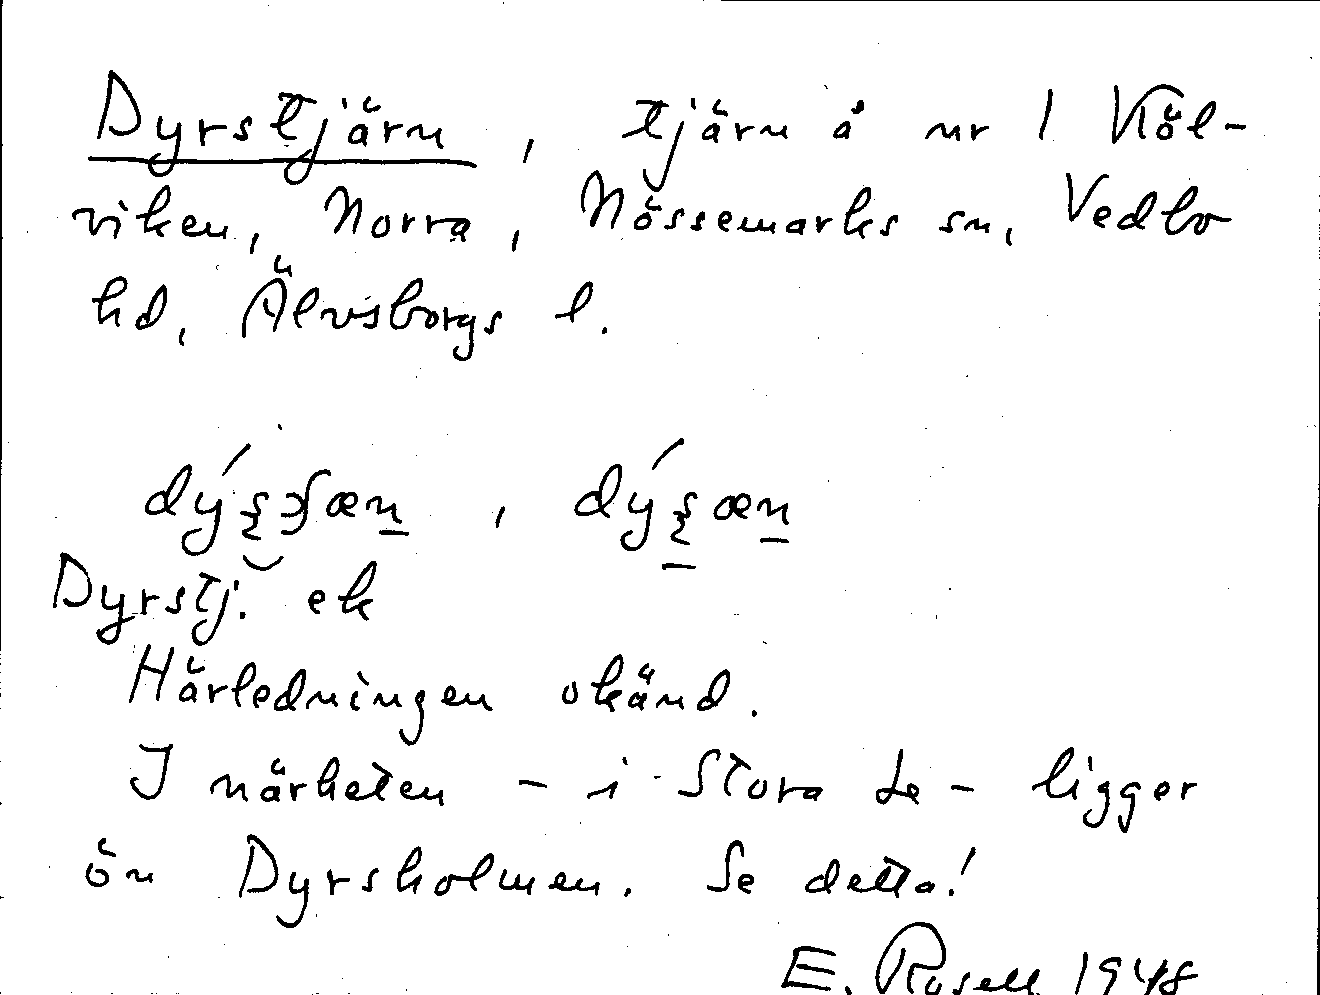 Dyrstjärn, tjärn å nr 1 Köl-
viken, Norra, Nössemarks sn, Vedbo
hd, Älvsborgs l.
Dyrstj. ek
Härledningen okänd.
I närheten - i Stora Le - ligger
ön Dyrsholmen. Se detta!
E. Rosell 1948